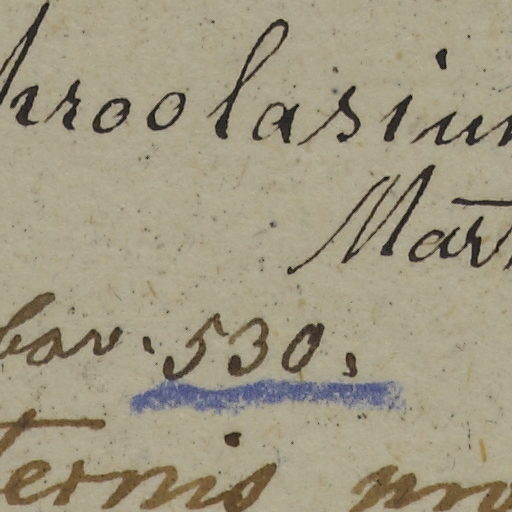 hroolasiu
Mart
bav. 530.
ternis